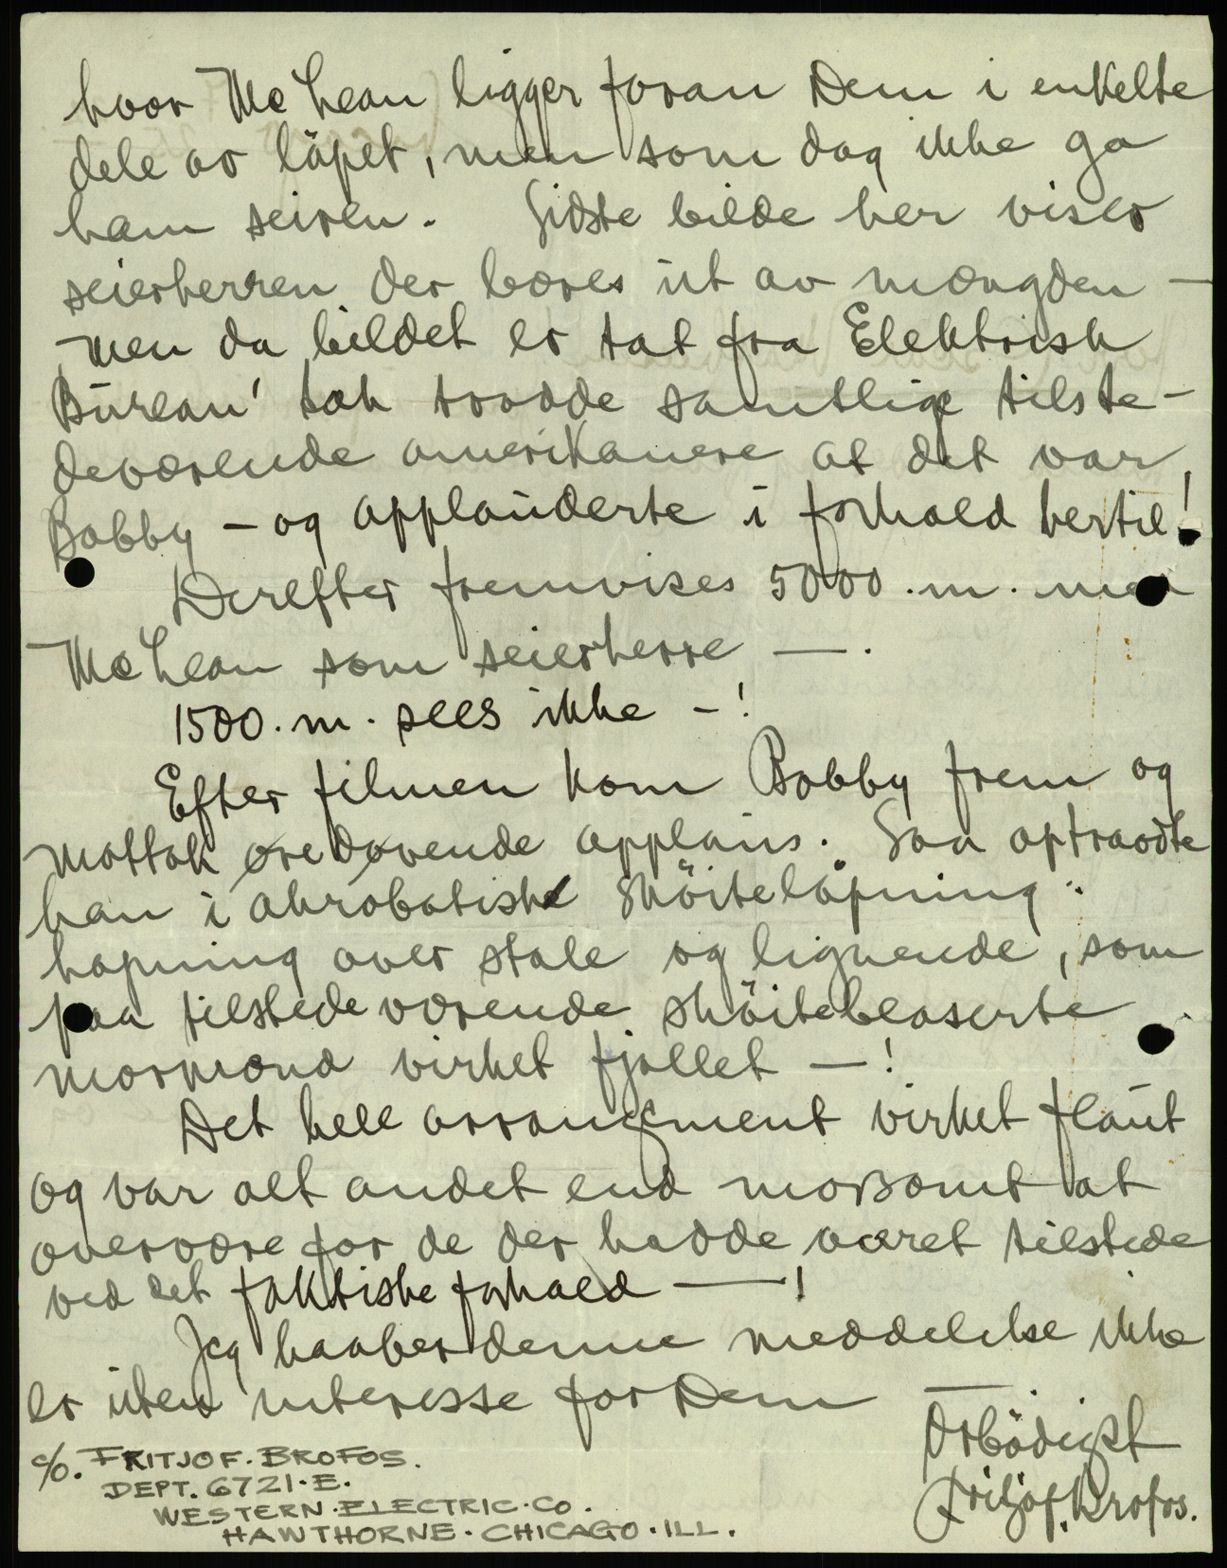 hvor Mc Lean ligger foran Dem i enkelte
dele av løpet, men som dog ikke ga
ham seiren. Sidste bilde her viser
seierherren der bæres ut av mængden —
Men da bildet er tat fra Elektrisk
Bureau' tak trodde samtlige tilste-
deværende amerikanere at det var
Bobby – og applauderte i forhold hertil!
Derefter fremvises 5000.m. med
Mc Lean som seierherre —.
1500.m. sees ikke –!
Efter filmen kom Bobby frem og
mottok øredøvende applaus. Saa optraadte
han i akrobatiske skøiteløpning:
hopning over stole og lignende, som
paa tilstedeværende skøiteblaserte
normænd virket fjollet —!
Det hele arrangement virket flaut
og var alt andet end morsomt at
overvære for de der hadde været tilstede
ved det faktiske forhold —!
Jeg haaber denne meddelelse ikke
er uten interesse for Dem —.
Ærbødigst
Fritjof. Brofos.
c/o. FRITJOF. BROFOS.
DEPT. 6721. E.
WESTERN. ELECTRIC. CO.
HAWTHORNE. CHICAGO. ILL.